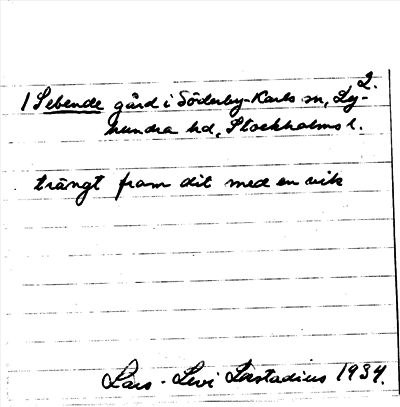 2.
1 Sebende gård i Söderby-Karls sn, Ly-
hundra hd, Stockholms l.
trängt fram dit med en vik
Lars-Levi Læstadius 1934.